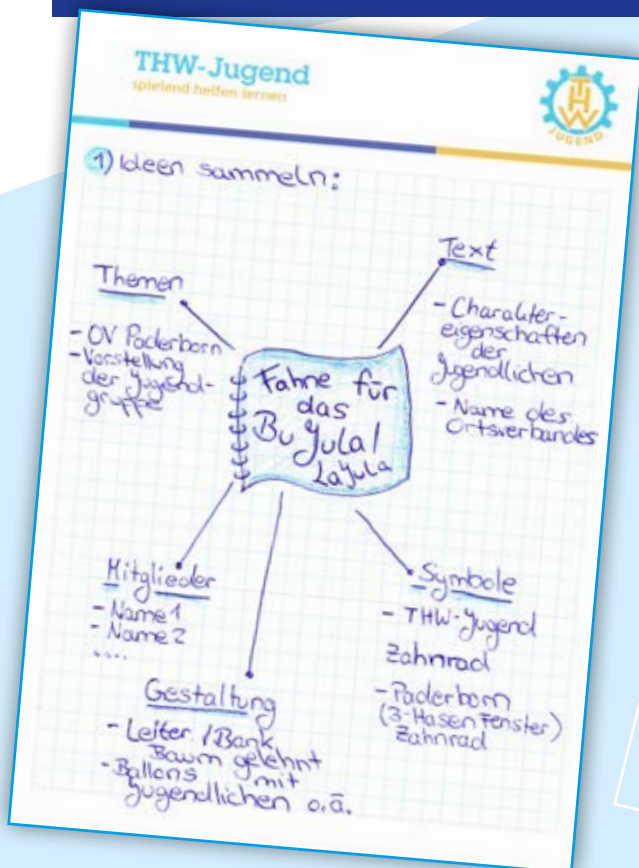 THW-Jugend
spielend helfen lernen
THW
JUGEND
1) Ideen sammeln:
Themen
- OV Paderborn
- Vorstellung
der Jugend-
gruppe
Text
- Charakter-
eigenschaften
der
Jugendlichen
- Name des
Ortsverbandes
Fahne für
das
BuJula/
LaJula
Mitglieder
- Name 1
- Name 2
....
Gestaltung
- Leiter / Bank
Baum gelehnt
- Ballons mit
Jugendlichen o.ä.
Symbole
- THW-Jugend
Zahnrad
- Paderborn
(3-Hasen Fenster)
Zahnrad